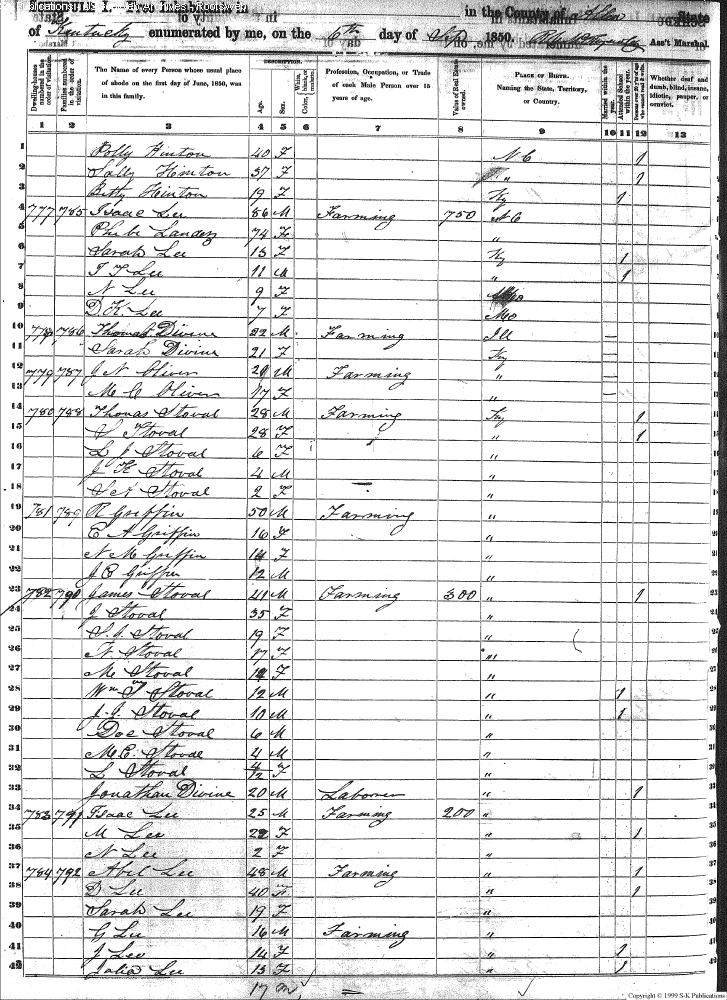 in the County of Allen State
of Kentucky enumerated by me, on the 6th day of Sept 1850. Ass't Marshal.
DESCRIPTION.
Dwelling-houses numbered in the order of visitation. Families numbered in the order of visitation. The Name of every Person whose usual place of abode on the first day of June, 1850, was in this family. Age. Sex. Color, White, black, or mulatto. Profession, Occupation, or Trade of each Male Person over 15 years of age. Value of Real Estate owned. PLACE OF BIRTH. Naming the State, Territory, or Country. Married within the year. Attended School within the year. Whether deaf and dumb, blind, insane, idiotic, pauper, or convict.
1 2 3 4 5 6 7 8 9 10 11 12 13
1 Polly Hinton 40 F N C 1
2 Sally Hinton 37 F " 1
3 Betty Hinton 19 F Ky 1
4 777 785 Isaac Lee 86 M Farming 750 N C
5 Phebe Landers 74 F "
6 Sarah Lee 13 F Ky 1
7 T F Lee 11 M " 1
8 N Lee 9 F Mo
9 D. K. Lee 7 F Mo
10 778 786 Thomas Divine 22 M Farming Ill —
11 Sarah Divine 21 F Ky —
12 779 787 J N Oliver 21 M Farming " —
13 M C Oliver 17 F " —
14 780 788 Thomas Stoval 28 M Farming Ky 1
15 S Stoval 28 F " 1
16 L J Stoval 6 F "
17 J K Stoval 4 M "
18 Stoval 2 F "
19 781 789 R Griffin 50 M Farming "
20 E A Griffin 16 F "
21 N M Griffin 14 F "
22 J C Griffin 12 M "
23 782 790 James Stoval 41 M Farming 300 " 1
24 J Stoval 35 F "
25 S. J. Stoval 19 F "
26 N. Stoval 17 F "
27 M Stoval 14 F "
28 Wm T Stoval 12 M " 1
29 J. J. Stoval 10 M " 1
30 Doc Stoval 6 M "
31 M. C. Stoval 4 M "
32 L Stoval 4/12 F "
33 Jonathan Divine 20 M Laborer " 1
34 783 791 Isaac Lee 25 M Farming 200 "
35 M Lee 22 F " 1
36 N Lee 2 F "
37 784 792 Abel Lee 48 M Farming " 1
38 D Lee 40 F " 1
39 Sarah Lee 19 F "
40 G Lee 16 M Farming "
41 J Lee 14 F " 1
42 Julia Lee 13 F " 1
17 m
Copyright © 1999 S-K Publications